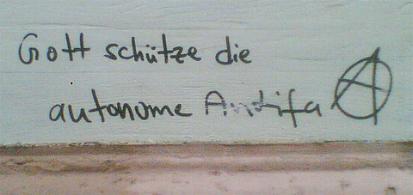 Gott schütze die
autonome Antifa